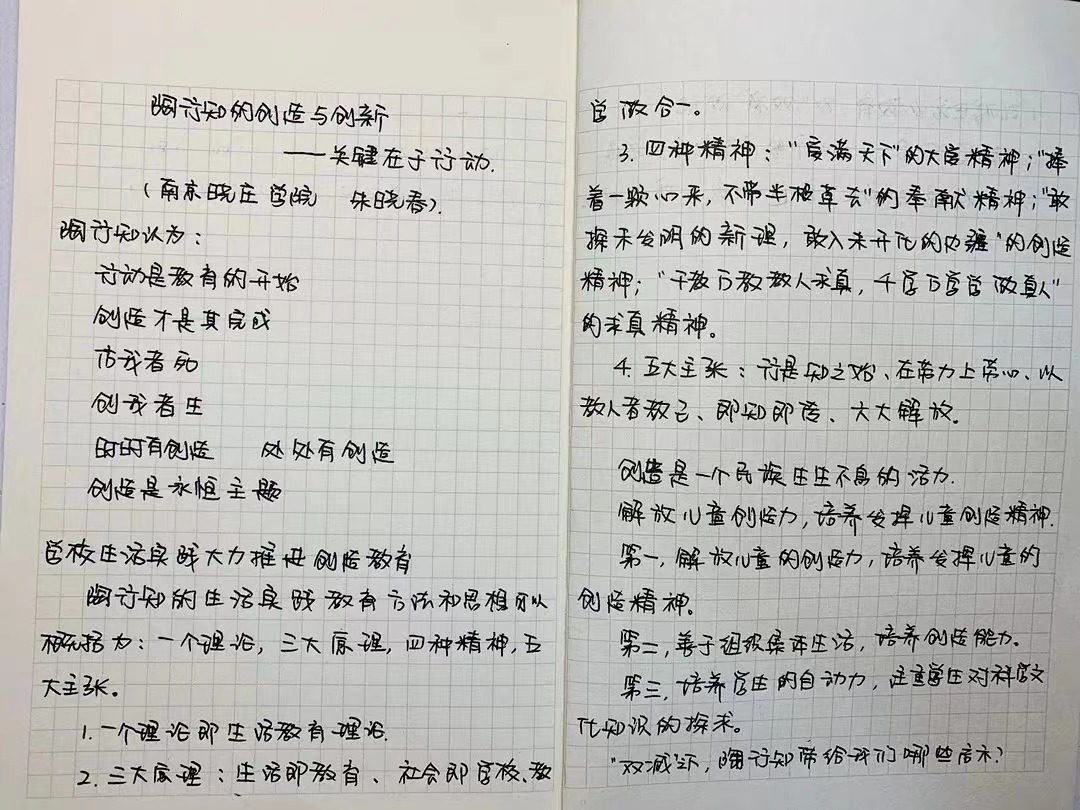 陶行知的创造与创新
——关键在于行动.
(南京晓庄学院 朱晓春).
陶行知认为:
行动是教育的开始
创造才是其完成
仿我者死
创我者生
时时有创造 处处有创造
创造是永恒主题
学校生活实践大力推进创造教育
陶行知的生活实践教育方法和思想可以
概括为:一个理论,三大原理,四种精神,五
大主张。
1.一个理论即生活教育理论.
2.三大原理:生活即教育、社会即学校、教
学做合一。
3.四种精神:"爱满天下"的大爱精神;"捧
着一颗心来,不带半根草去"的奉献精神;"敢
探未发明的新理,敢入未开化的边疆"的创造
精神;"千教万教教人求真,千学万学学做真人"
的求真精神。
4.五大主张:行是知之始、在劳力上劳心、以
教人者教己、即知即传、六大解放。
创造是一个民族生生不息的活力.
解放儿童创造力,培养发挥儿童创造精神.
第一,解放儿童的创造力,培养发挥儿童的
创造精神。
第二,善于组织集体生活,培养创造能力。
第三,培养学生的自动力,注重学生对科学文
化知识的探求。
"双减"下,陶行知带给我们哪些启示?